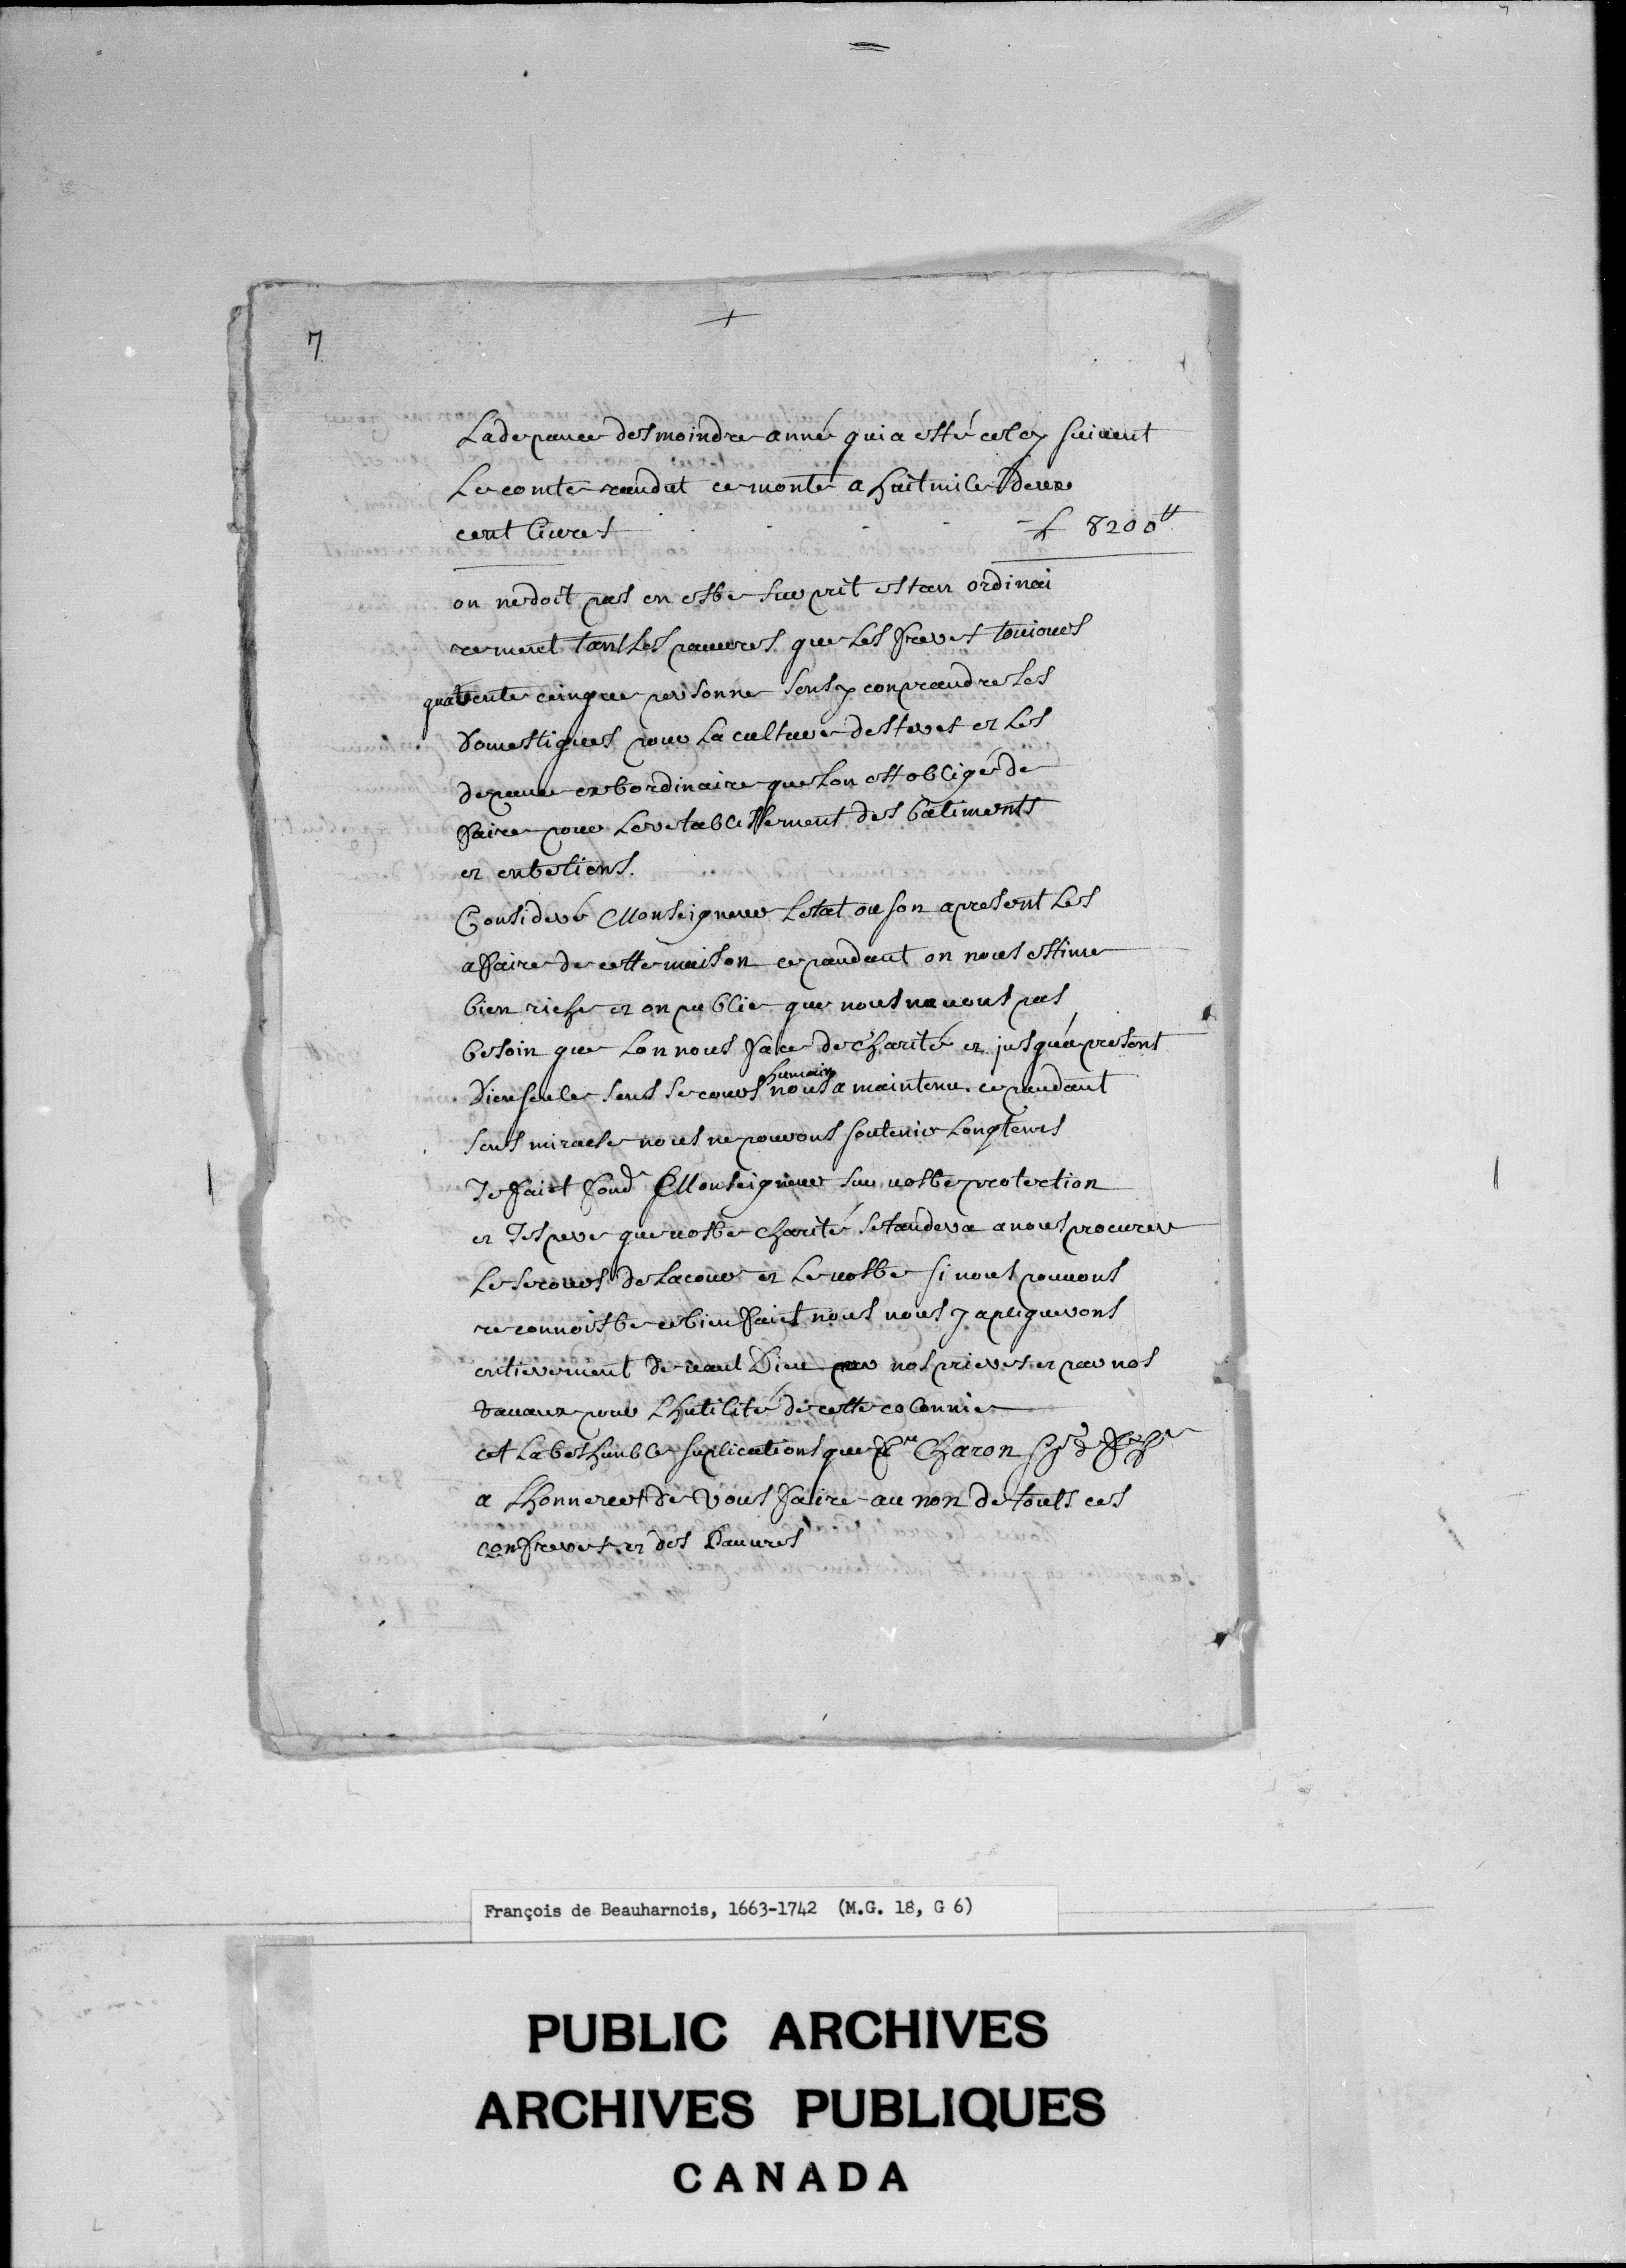 +
7
La depance des moindre anné qui a esté celcy suivent
Le comte randut ce monte a huit mile deux
cent livres - £ 8200tt
on ne doit pas en estre surprit estan ordinai
rement tant les pauvres que les freres toujours
quarente cinque personne sens y conprandre les
domestiques pour la culture des teres et les
depance extrordinaire que lon est obligé de
faire pour le retablissement des batiments
et entretiens.
Consideré Monseigneur letat ou son apresent les
afaire de cette maison cepandant on nous estime
bien riche et on publie que nous navons pas
besoin que lon nous face de charité et jusqu'apresent
Dieu seule sens secours humain nous a maintenu. cepandant
sens miracle nous ne pouvons soutenir longtems
Je fait fond Monseigneur sur vostre protection
et Jespere que vostre charité setandera a nous procurer
le secours de la cour et le vostre si nous pouvons
reconnoistre ce bien fait nous nous y apliquerons
entierement devant Dieu par nos prieres et par nos
travaux pour lhutilité de cette colonnie
cet la tres humble suplications que fre Charon
a lhonneur de vous faire au non de touts ces
confreres et des Pauvres
François de Beauharnois, 1663-1742 (M.G. 18, G 6)
PUBLIC ARCHIVES
ARCHIVES PUBLIQUES
CANADA